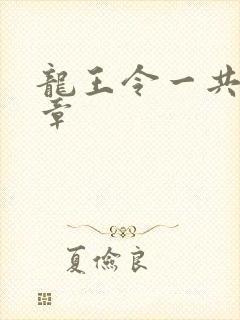 龍王令一共
章
夏儉良